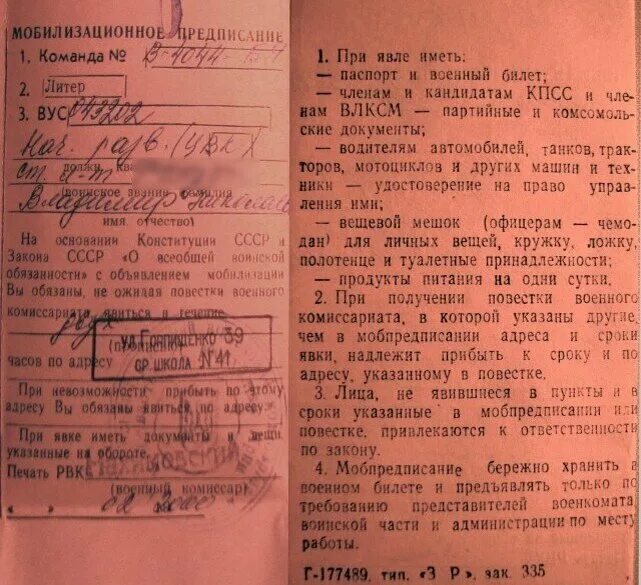 МОБИЛИЗАЦИОННОЕ ПРЕДПИСАНИЕ
1. Команда №
2. Литер
3. ВУС 043202
Нач. разв. (
должн. ква
ст. л-т
(воинское звание фамилия
Владимир
имя отчество)
На основании Конституции СССР и
Закона СССР «О всеобщей воинской
обязанности» с объявлением мобилизации
Вы обязаны, не ожидая повестки военного
комиссариата явиться в течение
двух
УЛ. ГОРПИЩЕНКО 39
СР. ШКОЛА №41
часов по адресу
При невозможности прибыть по этому
адресу Вы обязаны явиться по адресу
При явке иметь документы и вещи
указанные на обороте.
Печать РВК
(военный комиссар)
1. При явле иметь:
— паспорт и военный билет;
— членам и кандидатам КПСС и чле-
нам ВЛКСМ — партийные и комсомоль-
ские документы;
— водителям автомобилей, танков, трак-
торов, мотоциклов и других машин и тех-
ники — удостоверение на право управ-
ления ими;
— вещевой мешок (офицерам — чемо-
дан) для личных вещей, кружку, ложку,
полотенце и туалетные принадлежности;
— продукты питания на одни сутки.
2. При получении повестки военного
комиссариата, в которой указаны другие,
чем в мобпредписании адреса и сроки
явки, надлежит прибыть к сроку и по
адресу, указанному в повестке.
3. Лица, не явившиеся в пункты и в
сроки указанные в мобпредписании или
повестке, привлекаются к ответственности
по закону.
4. Мобпредписание бережно хранить в
военном билете и предъявлять только по
требованию представителей военкомата
воинской части и администрации по месту
работы.
Г-177489, тип. «З Р», зак. 335